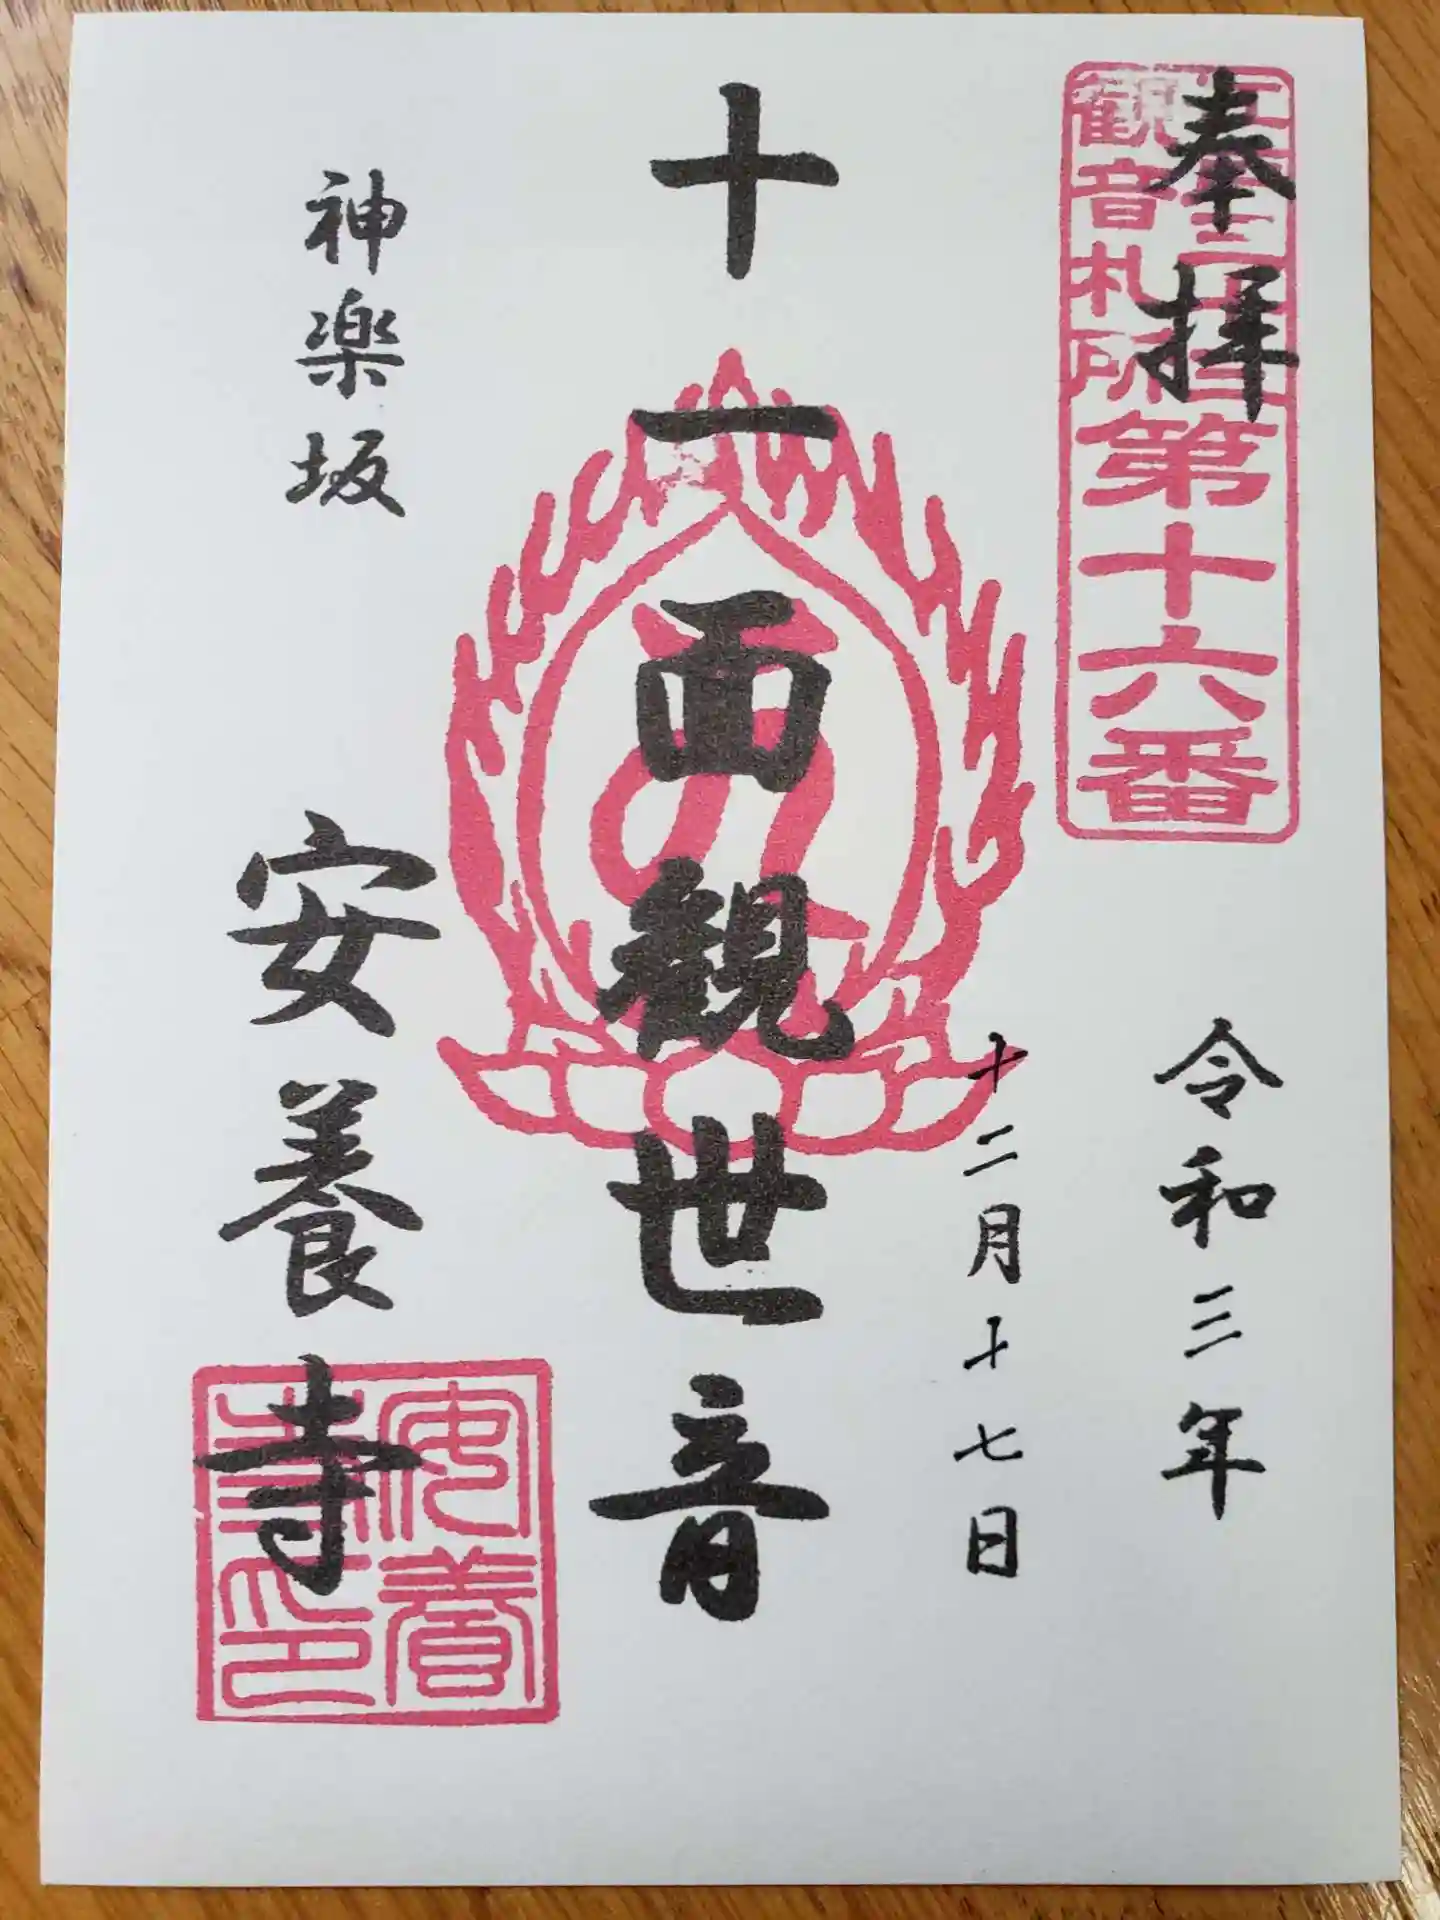 奉拝
江戸三十三
観音札所
第十六番
令和三年
十二月十七日
十一面観世音
神楽坂
安養寺
安養
寺印